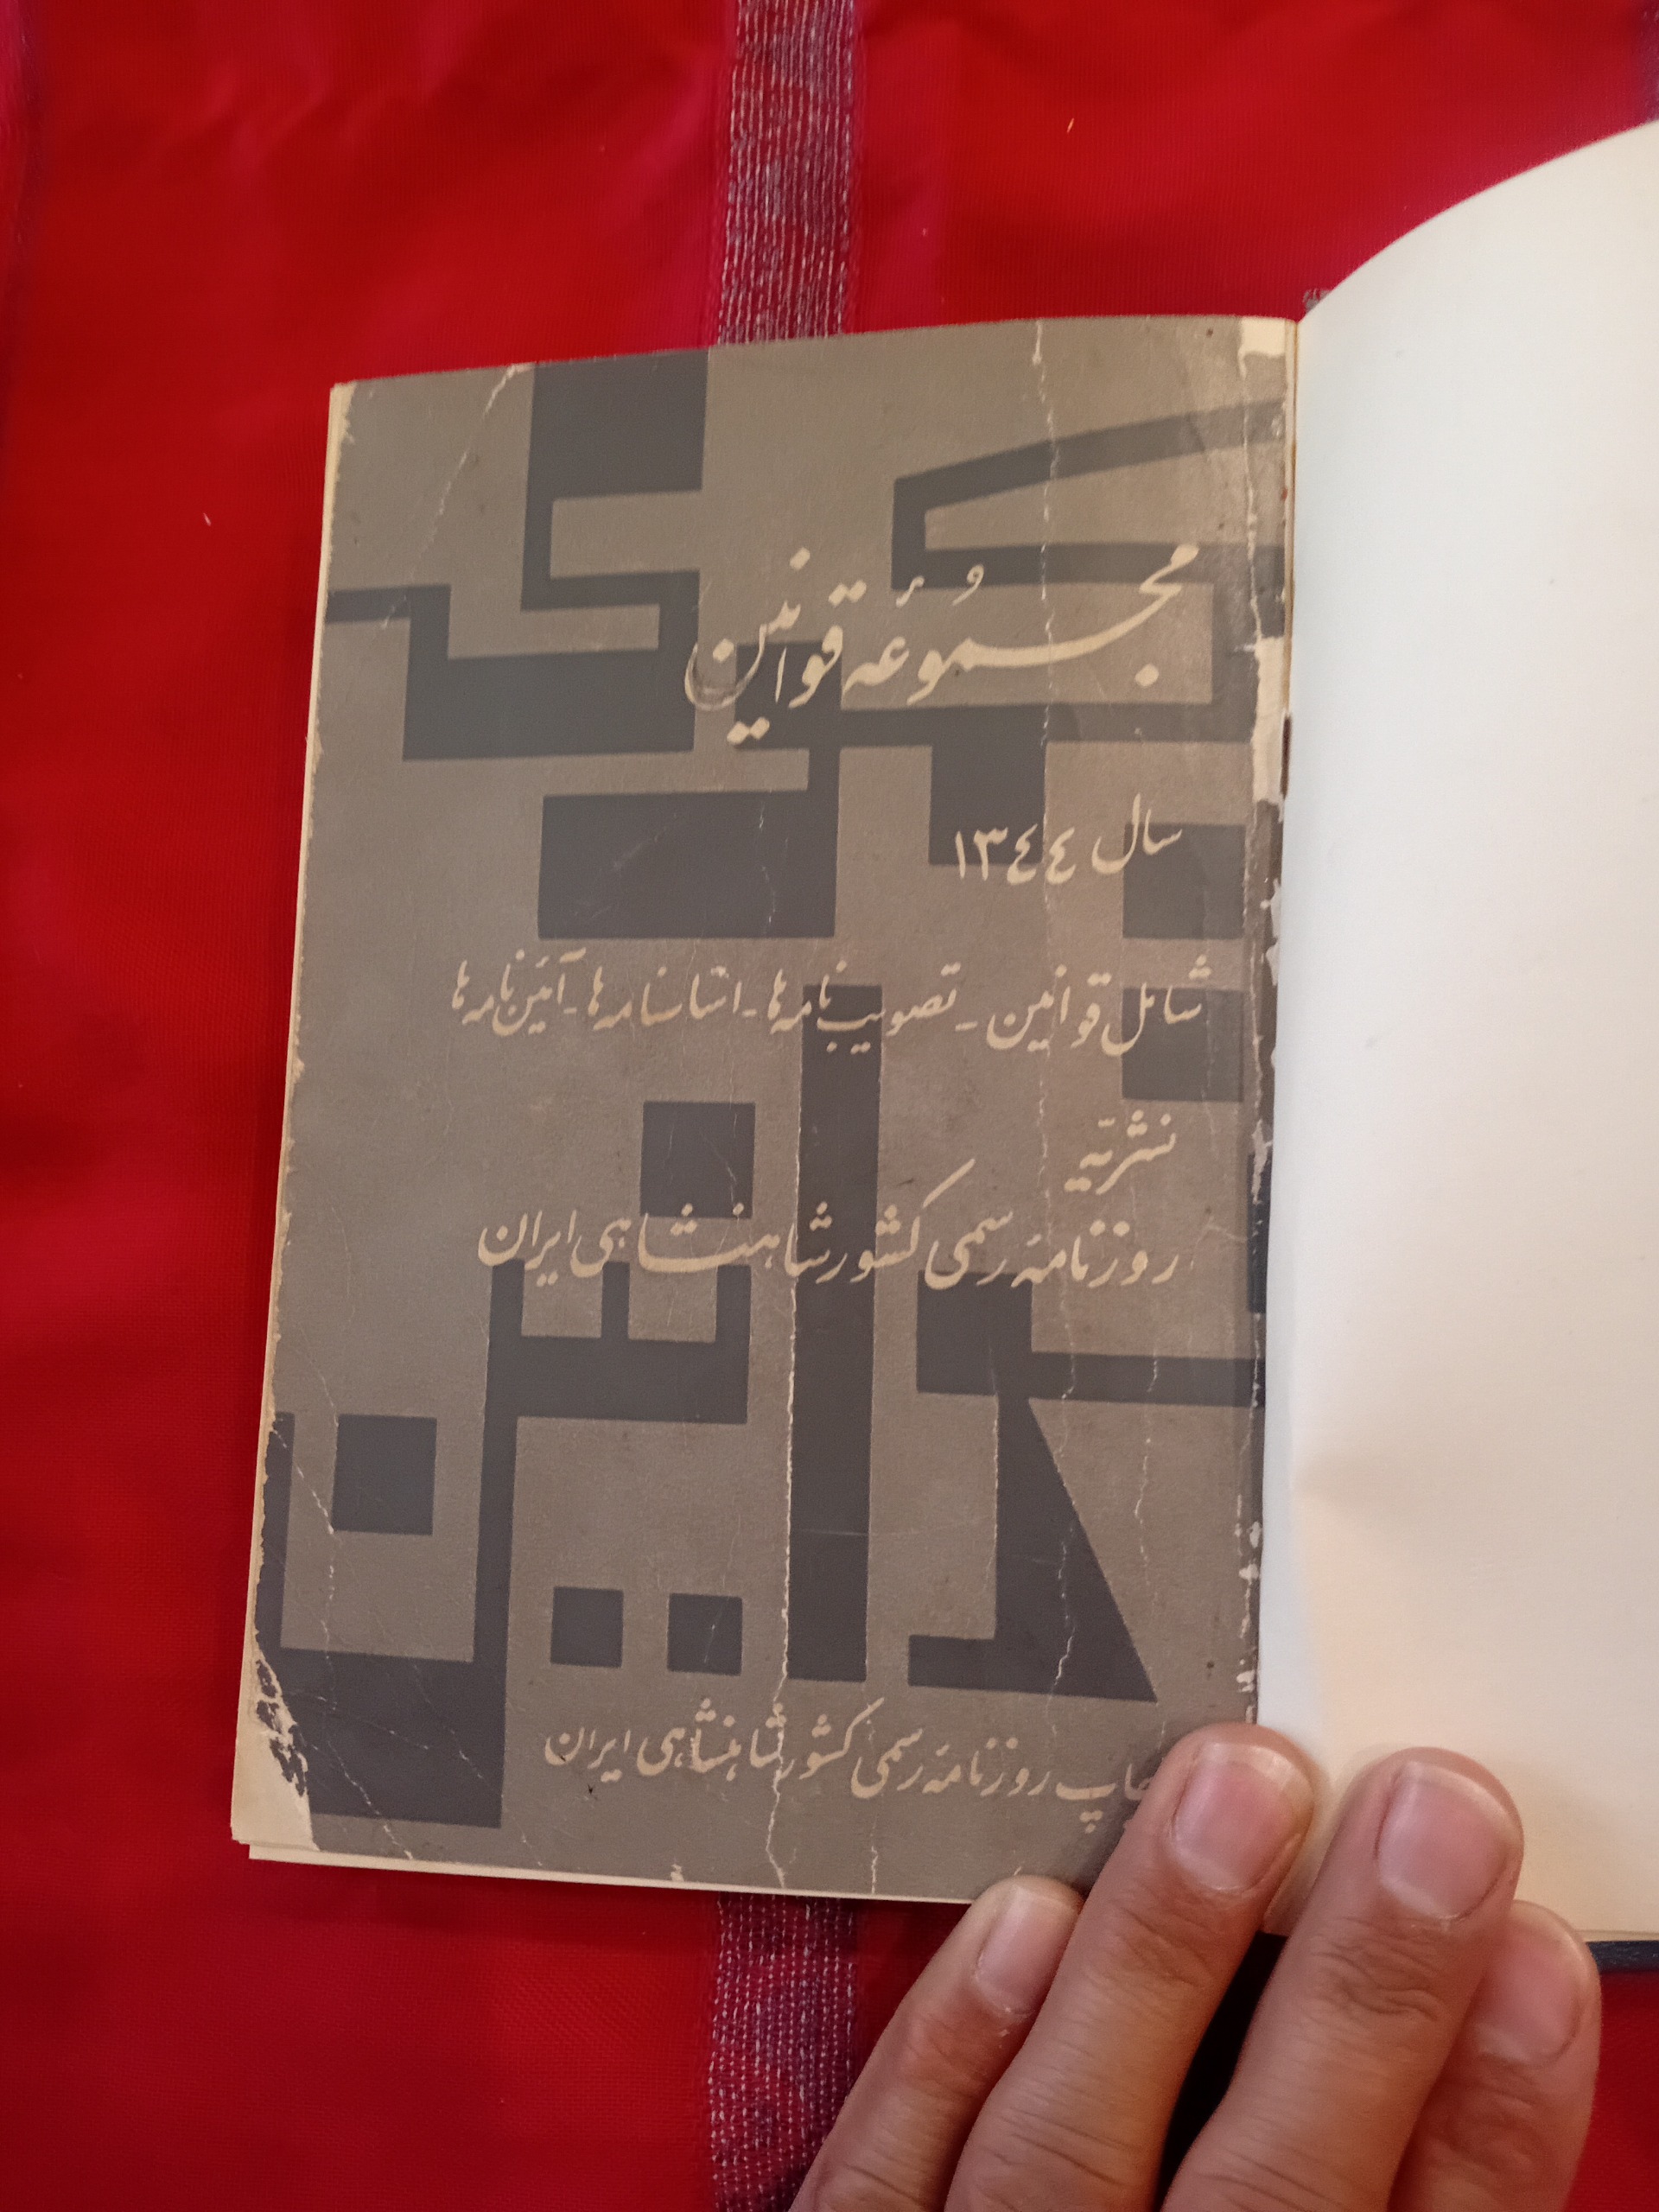 مجموعه قوانین
سال ۱۳٤٤
شامل قوانین - تصویب‌نامه‌ها - اساسنامه‌ها - آئین‌نامه‌ها
نشریّه
روزنامه رسمی کشور شاهنشاهی ایران
چاپ روزنامه رسمی کشور شاهنشاهی ایران